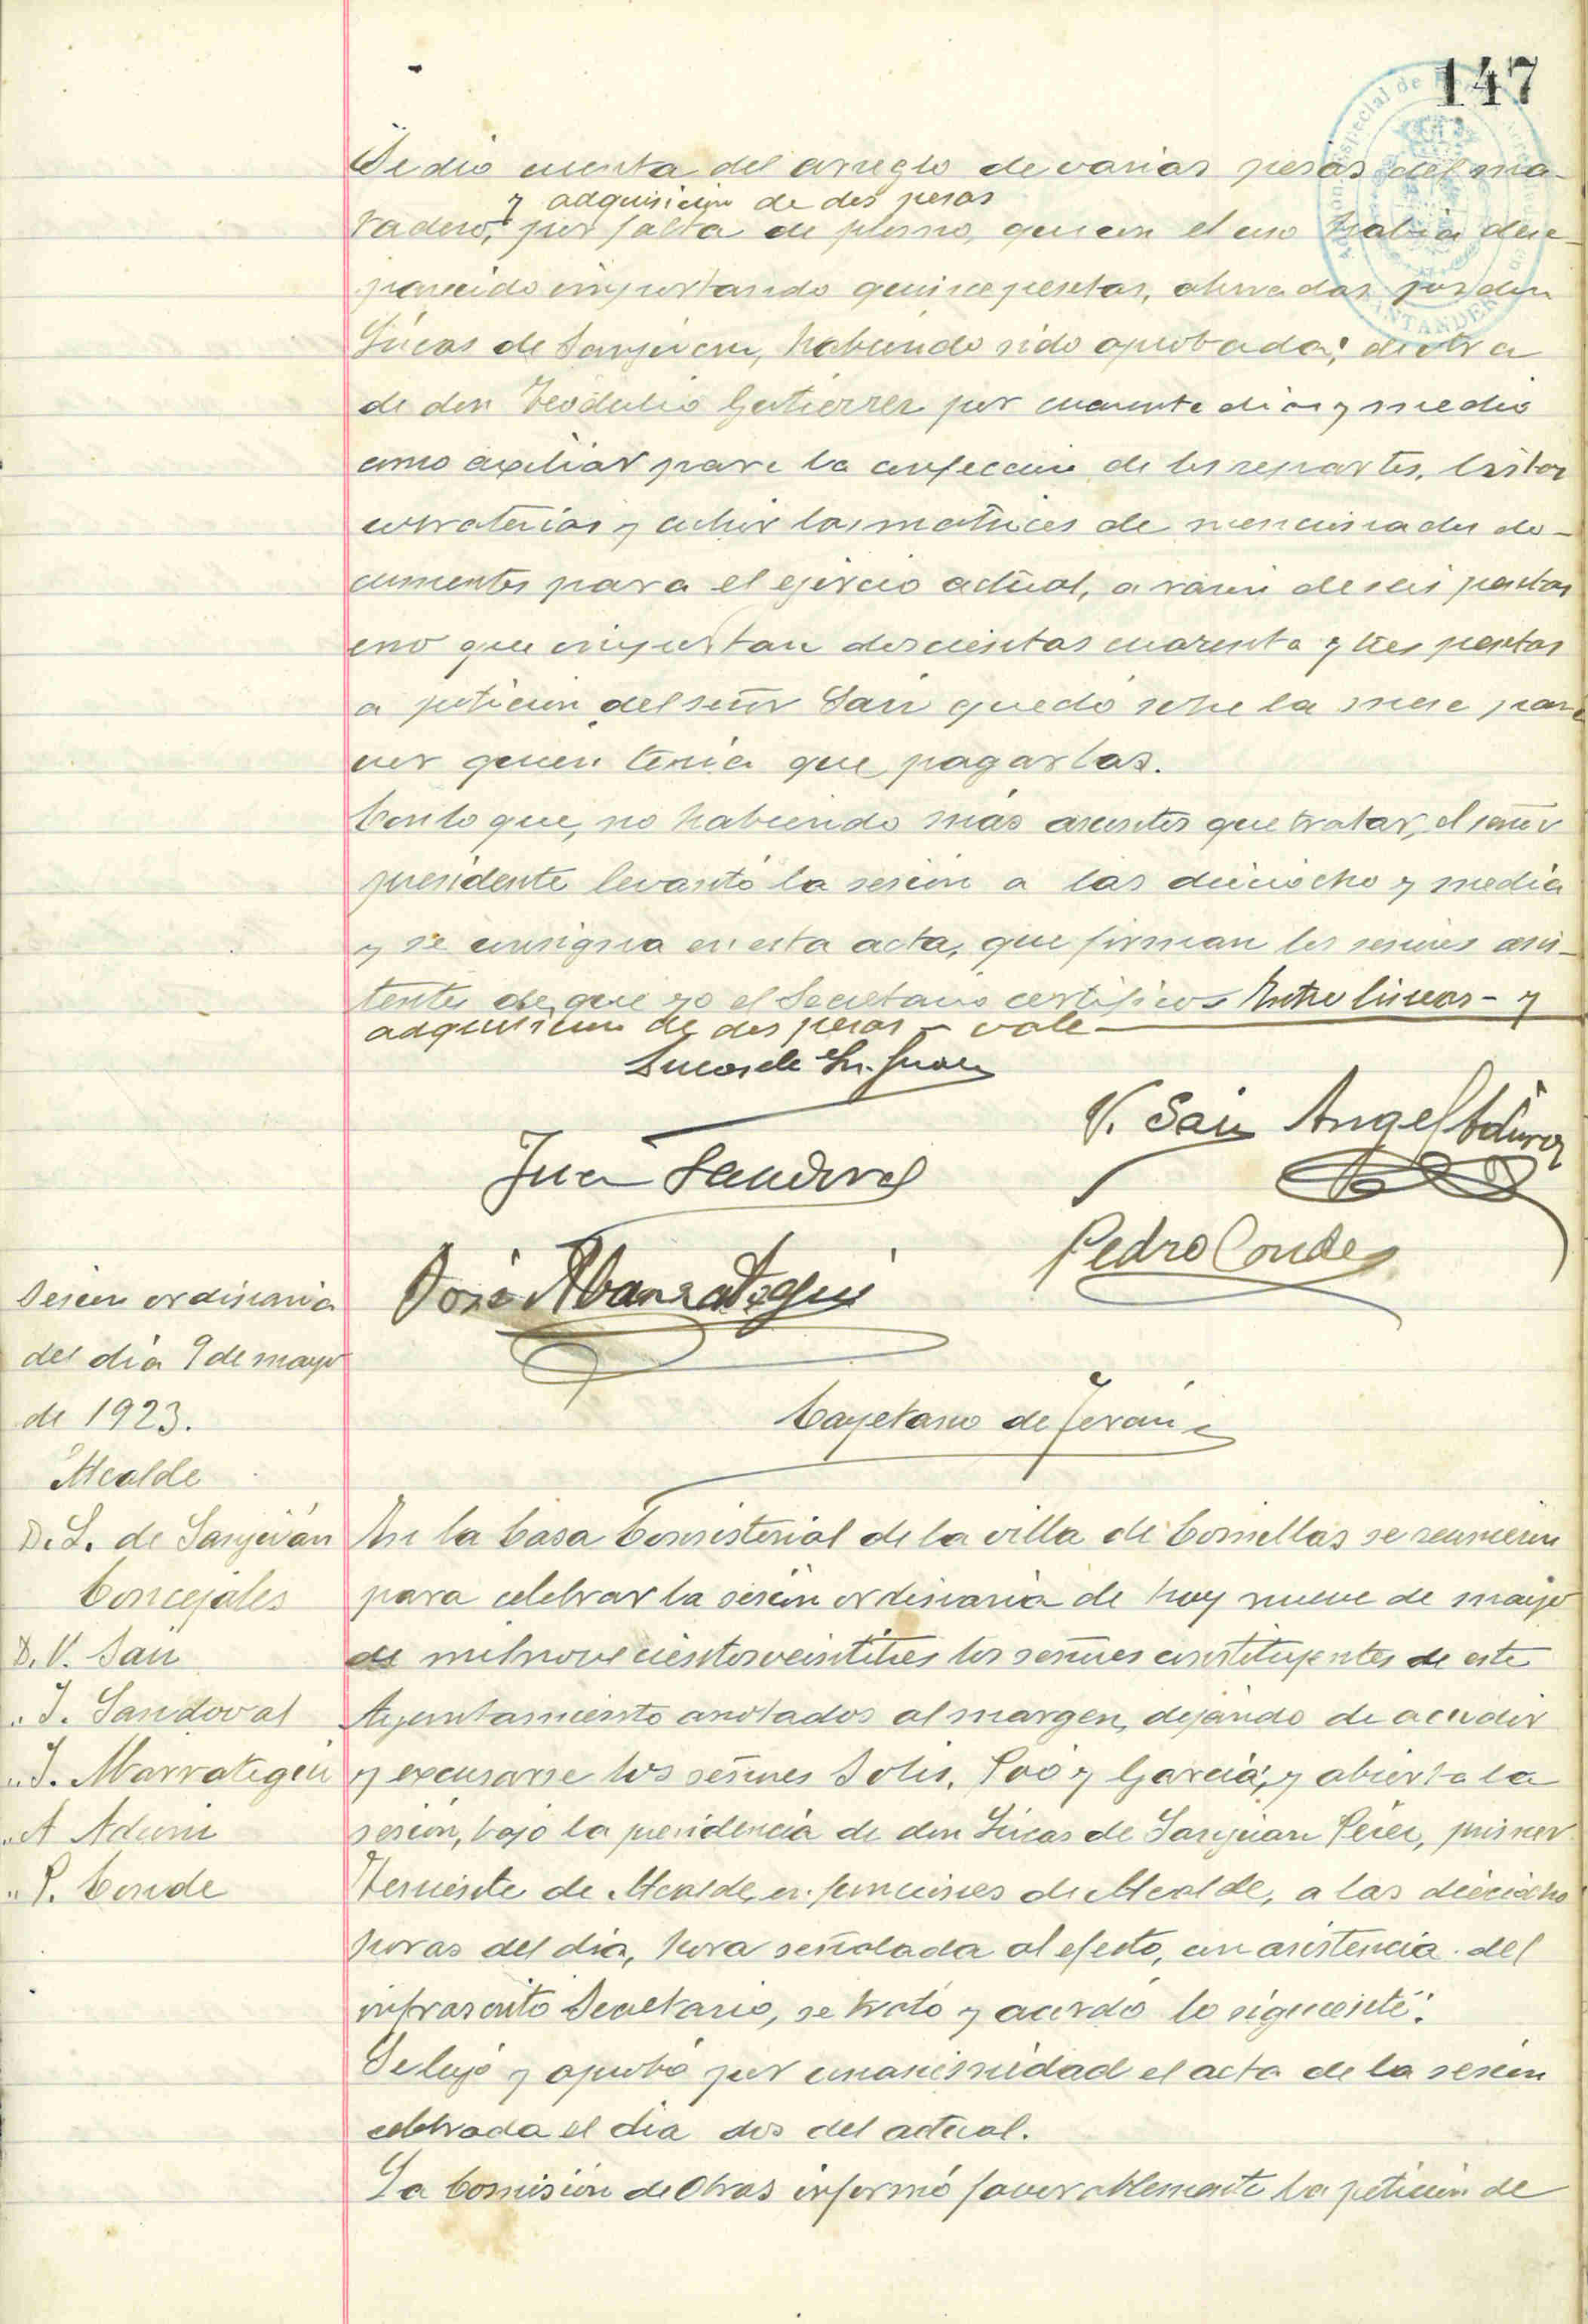 147
Se dió cuenta del arreglo de varias pesas del ma-
y adquisición de dos pesas
tadero, por falta de plomo, que con el uso había desa-
parecido importando quince pesetas, abonadas por don
Lúcas de Sanjuan, habiendo sido aprobada; de otra
de don Teódulio Gutierrez por cuarenta dias y medio
como auxiliar para la confección de los repartos, listas
cobratorias y cubrir las matrices de mencionados do-
cumentos para el ejercio actual, a razón de seis pesetas
uno que importan doscientas cuarenta y tres pesetas
a petición del señor Sain quedó sobre la mesa para
ver quien tenia que pagarlas.
Con lo que, no habiendo más asuntos que tratar, el señor
presidente levantó la sesión a las dieciocho y media
y se consigna en esta acta, que firman los señores asis-
tentes de que yo el Secretario certifico = Entre lineas - y
adquisición de dos pesas - vale
Lucas de Sn. Juan
V. Sain Angel
Juan Sandoval
Pedro Conde
José Abarrategui
Cayetano de Terán
Sesión ordinaria
del día 9 de mayo
de 1923.
Alcalde
D. L. de Sanjuán
Concejales
D. V. Sain
" J. Sandoval
" J. Abarrategui
" A
" P. Conde
En la Casa Consistorial de la villa de Comillas se reunieron
para celebrar la sesión ordinaria de hoy nueve de mayo
de mil novecientos veintitres los señores constituyentes de este
Ayuntamiento anotados al margen, dejando de acudir
y excusarse los señores Solis, Poo y García, y abierta la
sesión, bajo la presidencia de don Lúcas de Sanjuan Pérez, primer
Teniente de Alcalde, en funciones de Alcalde, a las dieciocho
horas del día, hora señalada al efecto, con asistencia del
infrascrito Secretario, se trató y acordó lo siguiente:
Se leyó y aprobó por unanimidad el acta de la sesión
celebrada el dia dos del actual.
La Comisión de Obras informó favorablemente la petición de